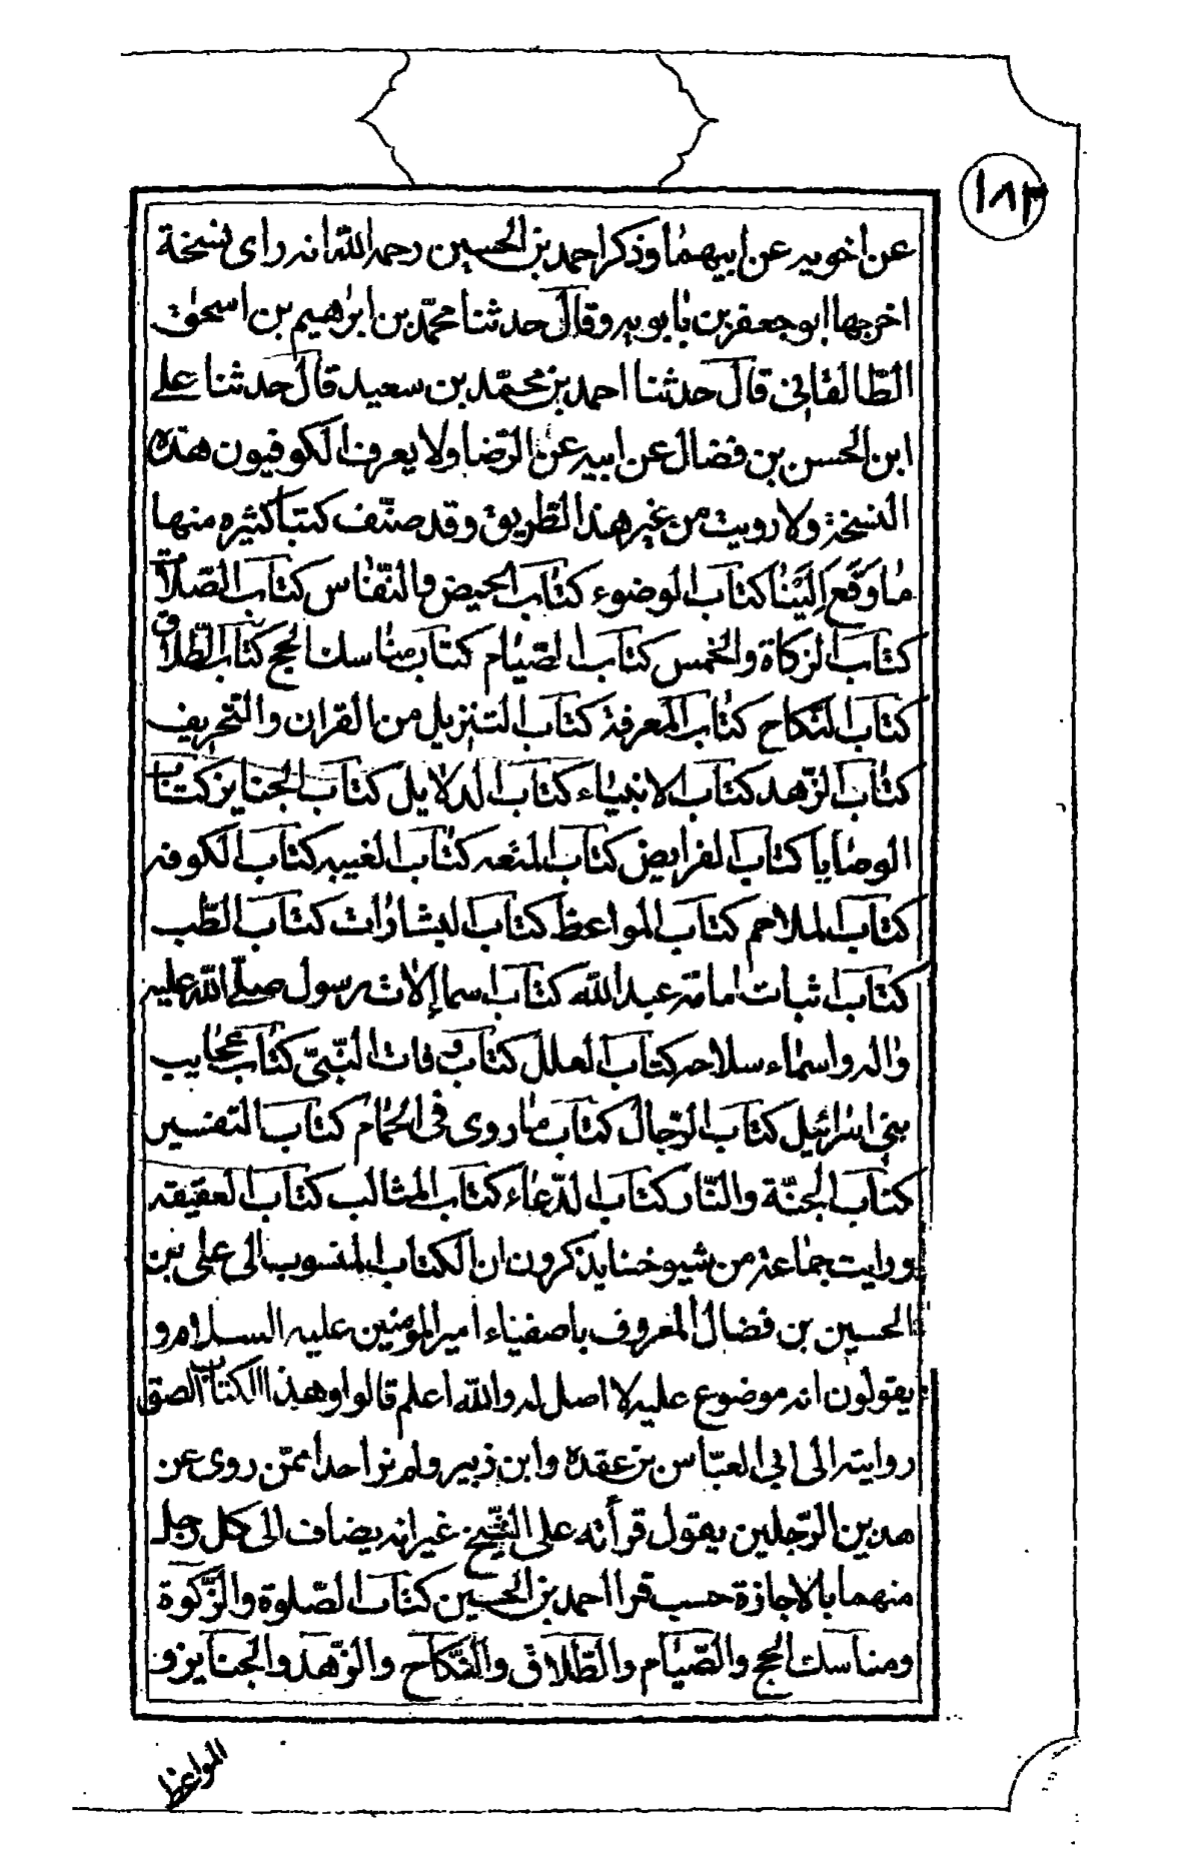 ١٨٣
عن اخويه عن ابيهما وذكر احمد بن الحسين رحمه الله انه راى نسخة
اخرجها ابو جعفر بن بابويه وقال حدثنا محمّد بن ابرٰهيم بن اسحٰق
الطّالقانى قال حدثنا احمد بن محمّد بن سعيد قال حدثنا على
ابن الحسن بن فضال عن ابيه عن الرّضا ولا يعرف الكوفيون هذه
النسخة ولا رويت من غير هذا الطّريق وقد صنّف كتبا كثيره منها
ما وَقَع اِلَيْنا كتاب الوضوء كتاب الحيض والنّفاس كتاب الصّلاة
كتاب الزكاة والخمس كتاب الصّيام كتاب مناسك الحج كتاب الطّلاق
كتاب النكاح كتاب المعرفة كتاب التنزيل من القران والتحريف
كتاب الزّهد كتاب الانبياء كتاب الدلايل كتاب الجنايز كتاب
الوصايا كتاب الفرايض كتاب المتعه كتاب الغيبه كتاب الكوفه
كتاب الملاحم كتاب المواعظ كتاب البشارات كتاب الطّب
كتاب اثبات امامة عبد الله كتاب اسما الات رسول صلّى الله عليه
واله واسماء سلاحه كتاب العلل كتاب وفات النّبىّ كتاب عجايب
بنى اسرائيل كتاب الرّجال كتاب ما روى فى الحمّام كتاب التفسير
كتاب الجنّة والنّار كتاب الدّعاء كتاب المثالب كتاب العقيقه
ورايت جماعة من شيوخنا يذكرون ان الكتاب المنسوب الى على بن
الحسين بن فضال المعروف باصفياء امير المومنين عليه السلام و
يقولون انه موضوع عليه لا اصل له والله اعلم قالوا وهذا الكتاب الصق
روايته الى ابى العبّاس بن عقده وابن زبير ولم نر احدا ممّن روى عن
هذين الرّجلين يقول قرأته على الشّيخ غير انه يضاف الى كل رجل
منهما بالاجازة حسب قرا احمد بن الحسين كتاب الصّلوة والزّكوة
ومناسك الحج والصّيام والطّلاق والنّكاح والزّهد والجنايز و
المواعظ